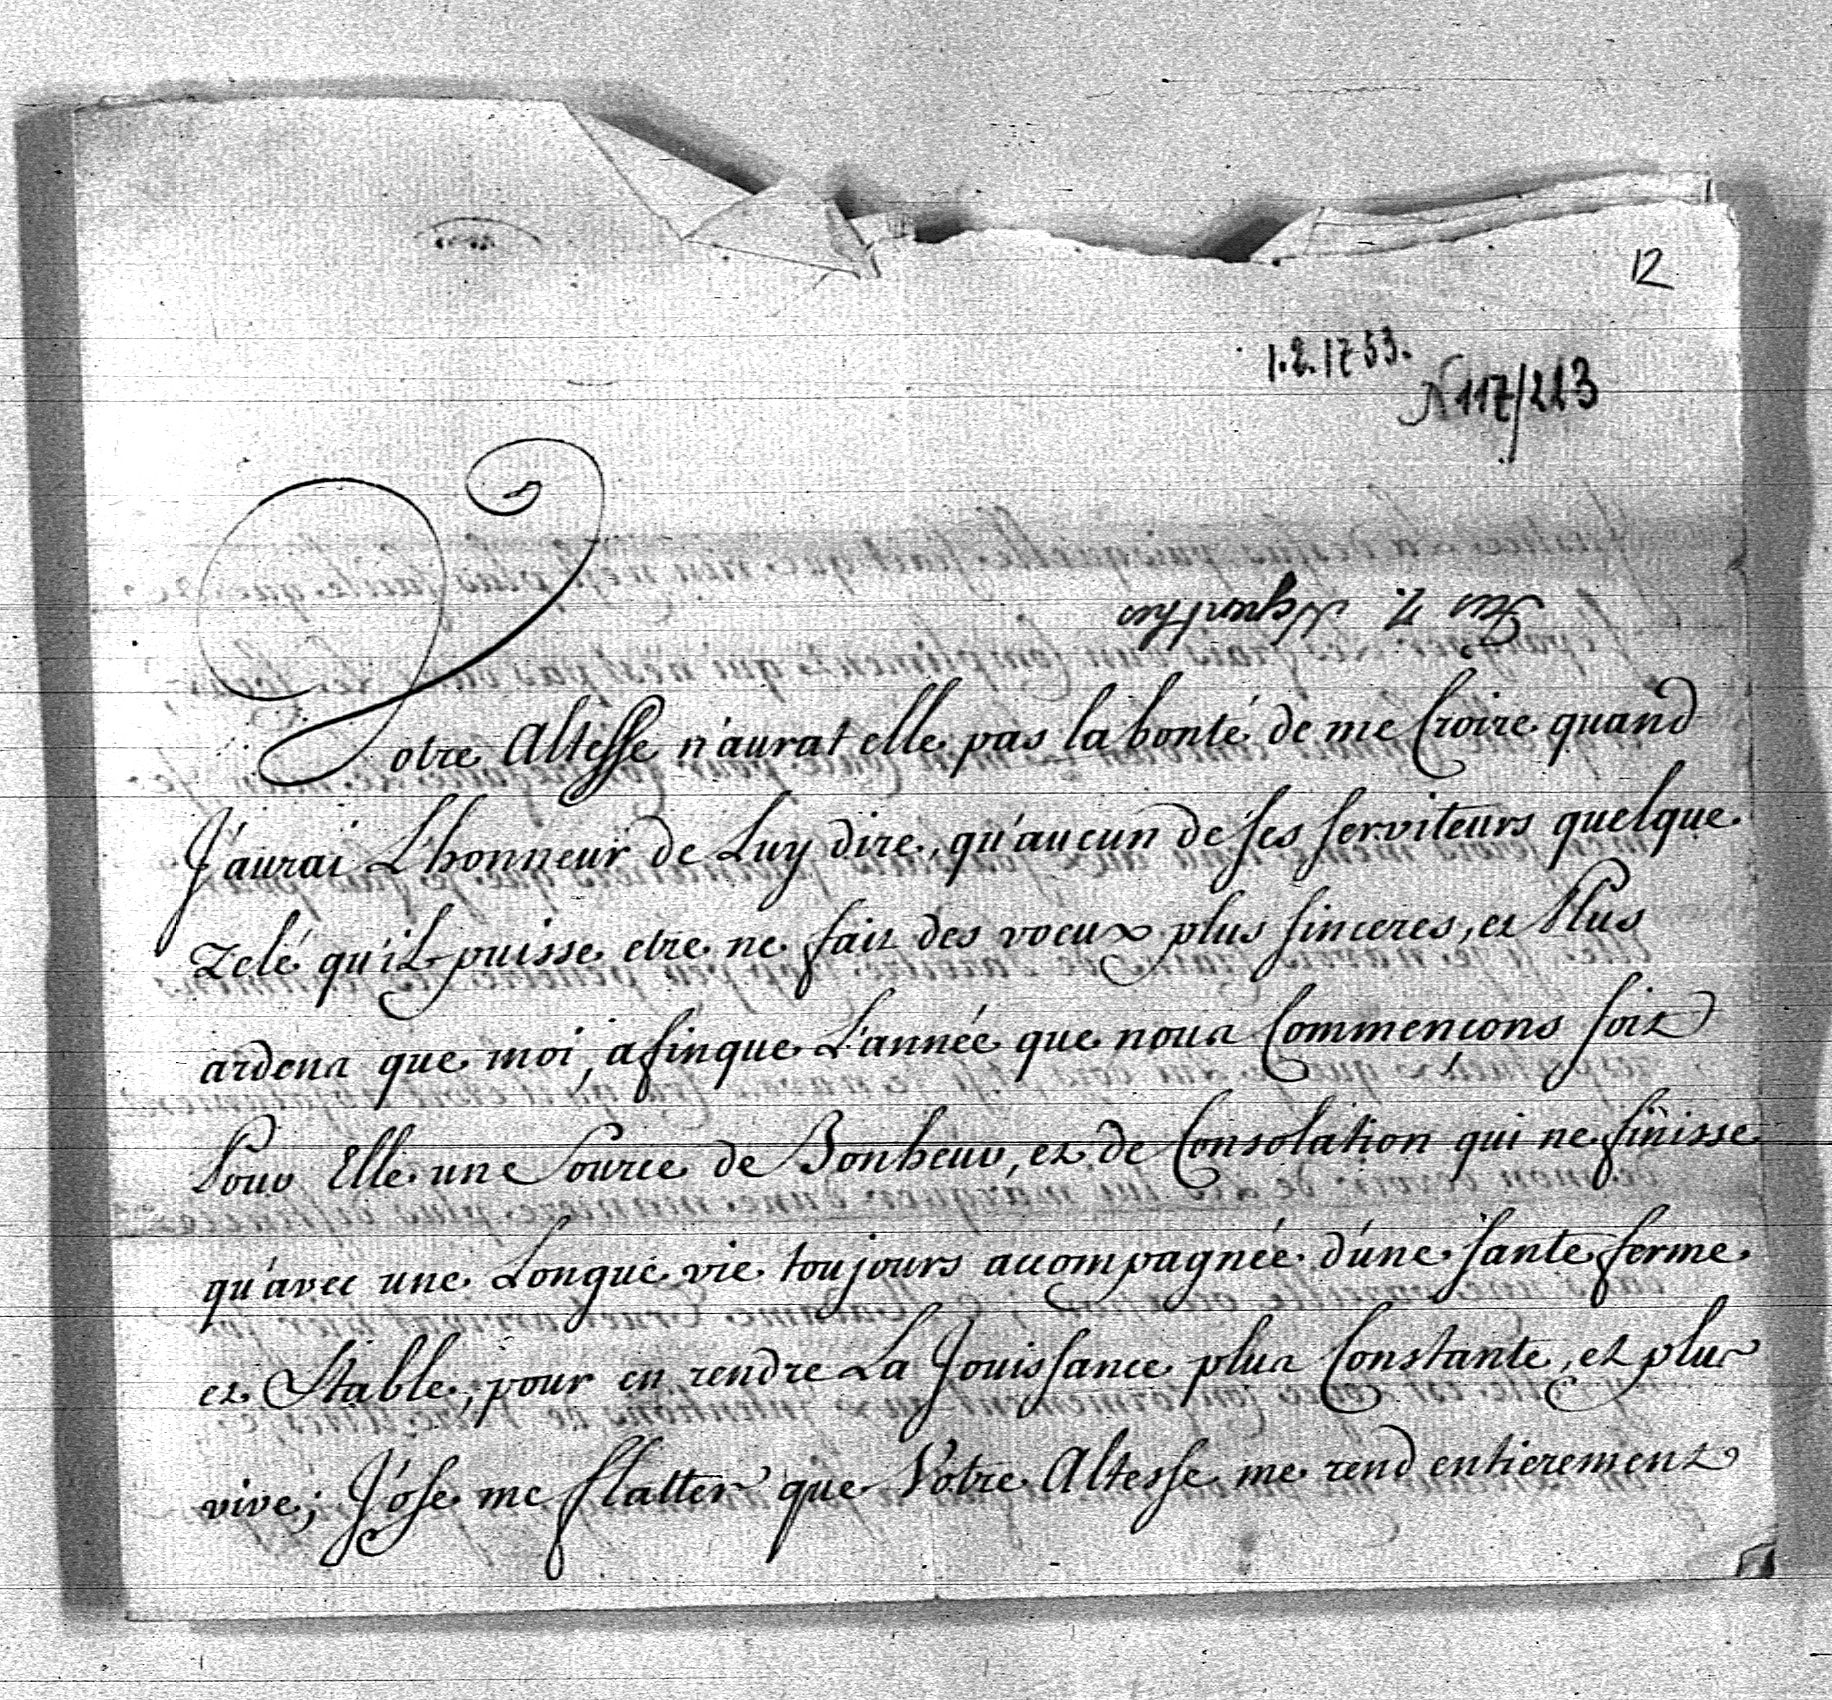 12
1.2.1753.
N117/223
Votre Altesse n'aurat elle pas la bonté de me Croire quand
J'aurai L'honneur de Luy dire, qu'aucun de ses serviteurs quelque
zelé qu'il puisse etre ne fait des voeux plus sinceres, et Plus
ardens que moi, afinque L'année que nous Commençons soit
Pour Elle une Source de Bonheur, et de Consolation qui ne finisse
qu'avec une Longue vie toujours accompagnée d'une santé ferme
et Stable, pour en rendre La Jouissance plus Constante, et plus
vive; J'ose me flatter que Votre Altesse me rend entierement